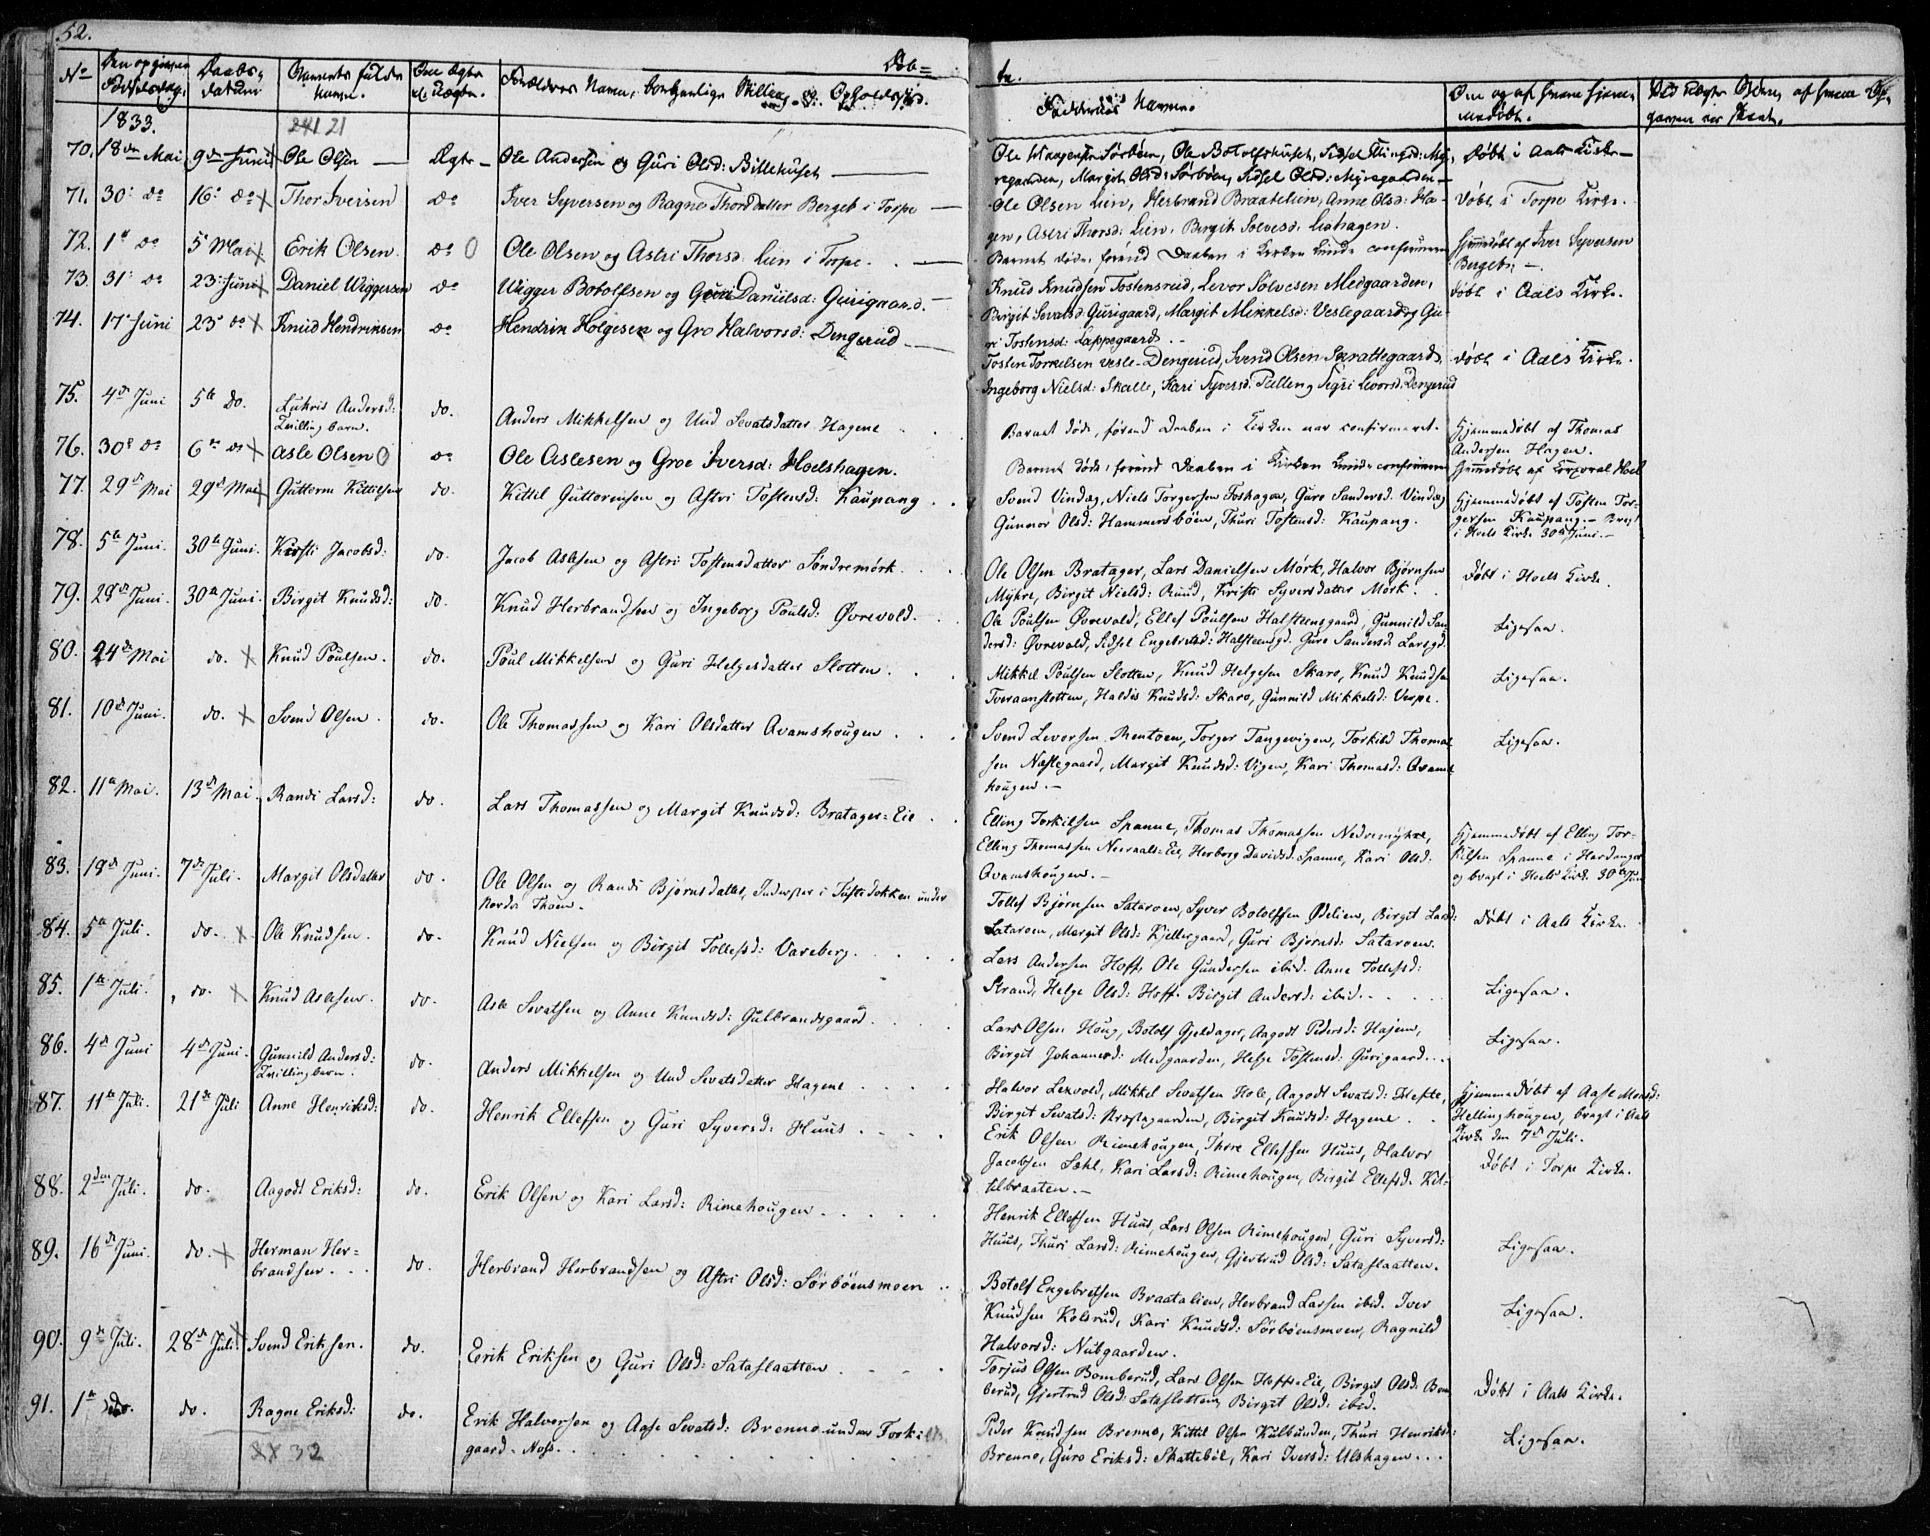 52.
Døb= te.
No
Den opgivne Fødselsdag.
Daabs-datum
Barnets fulde Navn.
Om Ægte el. Uægte.
Forældres Navn, borgerlige Stilling og Opholdssted.
Faddernes Navne.
Om og af hvem hjemmedøbt.
Ved Uægte Børn, af hvem
1833.
241 21
70. 18de Mai 9de Juni Ole Olsen Ægte Ole Andersen og Guri Olsd: Billehuset
Ole Haagensen Sørbøen, Ole Botolfshuset, Sidsel
Myregaarden, Margit Olsd: Sørbøen, Sidsel Olsd: Myregaarden
Døbt i Aals Kirke
71. 30: do 16: do Thor Iversen do Iver Syversen og Ragne Thorsdatter Berget i Torpe
Ole Olsen Lien, Herbrand Braatelien, Anne Olsd: Hagen, Astri Thorsd: Lien, Birgit Solvesd: Liahagen.
Døbt i Torpe Kirke.
72. 1st do 5 Mai Erik Olsen do Ole Olsen og Astri Thorsd: Lien i Torpe.
Barnet døde, førend Daaben i Kirken kunde confirmeres
Hjemmedøbt af Iver Syversen Berget.
73. 31: do 23: Juni Daniel Wiggersen do Wigger Botolfsen og Guri Danielsd: Gurigaard.
Knud Knudsen Tostensrud, Levor Solvesen Medgaarden,
Birgit Sevatsd: Gurigaard, Margit Mikkelsd: Veslegaard og Guri Tostensd: Lappegaard
Døbt i Aals Kirke.
74. 17de Juni 23de do Knud Hendriksen do Hendrik Holgesen og Gro Halvorsd: Dengerud
Tosten Torkelsen Vesle-Dengerud, Svend Olsen Skrattegaard,
Ingeborg Nielsd: Skalle, Kari Syversd: Pallen og Sigri Levorsd: Dengerud
Døbt i Aals Kirke.
75. 4de Juni 5te Do. Lukris Andersd: Tvillingbarn. do. Anders Mikkelsen og Und Sevatsdatter Hagene
Barnet døde, førend Daaben i Kirken var confirmeret.
Hjemmedøbt af Thomas Andersen Hagen.
76. 30de do 6te do Asle Olsen do Ole Aslesen og Groe Iversd: Hoelshagen.
Barnet døde, førend Daaben i Kirken kunde confirmeres
Hjemmedøbt af Corporal Hoel
77. 29de Mai 29de Mai Guttorm Kittilsen do. Kittil Guttormsen og Astri Tostensd: Kaupang
Svend Vindæg, Niels Torgersen Foshagen, Guro Sandersd: Vindæg
Gunnor Olsd: Hammersbøen, Thuri Tostensd: Kaupang.
Hjemmedøbt af Tosten Torgersen Kaupang. Bragt i Hoels Kirke 30te Juni.
78. 5te Juni. 30te Juni. Kirsti Jacobsd: do. Jacob Aslesen og Astri Tostensdatter Søndremørk.
Ole Olsen Bratager, Lars Danielsen Mørk, Halvor Bjørnsen
Myhre, Birgit Nielsd: Ruud, Kristi Syversdatter Mørk.
Døbt i Hoels Kirke.
79. 29de Juni. 30te Juni. Birgit Knudsd: do. Knud Herbrandsen og Ingeborg Poulsd: Øvrevold.
Ole Poulsen Øvrevold, Ellef Poulsen Halsteensgaard, Gunnild Sandersd: Øvrevold, Sidsel Engebretsd: Halsteensgd. Guro Sandersd: Larsgd.
Ligesaa.
80. 24de Mai do. Knud Poulsen. do. Poul Mikkelsen og Guri Helgesdatter Slotten.
Mikkel Poulsen Slotten, Knud Helgesen Skaro, Knud Knudsen
Tveraanslotten, Haldis Knudsd: Skaro, Gunnild Mikkelsd: Verpe.
Ligesaa.
81. 10de Juni. do. Svend Olsen. do. Ole Thomassen og Kari Olsdatter Qvamshougen
Svend Levorsen Rentoen, Torger Tangevigen, Torkild Thomassen Næstegaard, Margit Knudsd: Vigen, Kari Thomasd: Qvamshougen.
Ligesaa.
82. 11te Mai. 13de Mai. Randi Larsd: do. Lars Thomassen og Margit Knudsd: Bratager-Eie
Elling Torkilsen Spanne, Thomas Thomassen Nedremyhre,
Elling Thomassen Neeraals-Eie, Herborg Davidsd: Spanne, Kari Olsd:
Qvamshougen.
Hjemmedøbt af Elling Torkilsen Spanne i Hardanger og bragt i Hoels Kirke 30te Juni
83. 18de Juni. 7de Juli. Margit Olsdatter do. Ole Olsen og Randi Bjørnsdatter, Inderster i Tuftedokken under Nordre Thoen.
Tollef Bjørnsen Sataroen, Syver Botolfsen Ødelien, Birgit Larsd:
Sataroen, Margit Olsd: Kjellergaard, Guri Bjørnsd: Sataroen.
Døbt i Aals Kirke.
84. 5te Juli. do. Ole Knudsen. do. Knud Nielsen og Birgit Tollefsd: Vareberg.
Lars Andersen Hoff, Ole Gundersen ibid. Anne Tollefsd:
Strand, Helge Olsd: Hoff. Birgit Andersd: ibid.
Ligesaa.
85. 1ste Juli. do. Knud Aslesen. do. Asle Sevatsen og Anne Knudsd: Gulbrandsgaard.
Lars Olsen Houg, Botolf Gjeldager, Aagodt Pedersd: Hajem,
Birgit Johannesd: Medgaarden, Helge Tostensd: Gurigaard.
Ligesaa.
86. 4de Juni 4de Juni. Gunnild Andersd: Tvillingbarn. do. Anders Mikkelsen og Und Sevatsdatter Hagene
Halvor Lexvold, Mikkel Sevatsen Hole, Aagodt Sevatsd: Hefte,
Birgit Sevatsd: Næstegaarden, Birgit Knudsd: Hagene
Hjemmedøbt af Aase Monsd: Hellinghougen, bragt i Aals Kirke den 7de Juli.
87. 11te Juli. 21de Juli Anne Henriksd: do. Henrik Ellefsen og Guri Syversd: Huus
Erik Olsen Rimehougen, Thore Ellefsen Huus, Halvor
Jacobsen Sæhl, Kari Larsd: Rimehougen, Birgit Ellefsd: Kittilbraaten.
Døbt i Torpe Kirke.
88. 2den Juli. do. Aagodt Eriksd: do. Erik Olsen og Kari Larsd: Rimehougen
Henrik Ellefsen Huus, Lars Olsen Rimehougen, Guri Syversd:
Huus, Thuri Larsd: Rimehougen, Gjertrud Olsd: Sataslaatten.
Ligesaa.
89. 16de Juni. do. Herman Herbrandsen do. Herbrand Herbrandsen og Astri Olsd: Sørbøensmoen
Botolf Engebretsen Braatalien, Herbrand Larsen ibid. Iver
Knudsen Kolsrud, Kari Knudsd: Sørbøensmoen, Ragnild
Halvorsd: Nubgaarden.
Ligesaa.
90. 9de Juli. 28de Juli. Svend Eriksen. do. Erik Eriksen og Guri Olsd: Sataslaatten
Torjus Olsen Bomberud, Lars Olsen Hoffs-Eie, Birgit Olsd. Bomberud, Gjertrud Olsd: Sataslotten, Birgit Olsd: ibid.
Døbt i Aals Kirke.
91. 1ste do. do. Ragne Eriksd: do. Erik Halvorsen og Aase Sevatsd: Brenno under Torkilsgaard-Noss.
Peder Knudsen Brenno, Kittil Olsen Kulbunden, Thuri Henriksd:
Brenno, Guro Eriksd: Skattebøl, Kari Iversd: Ulshagen.
Ligesaa.
32